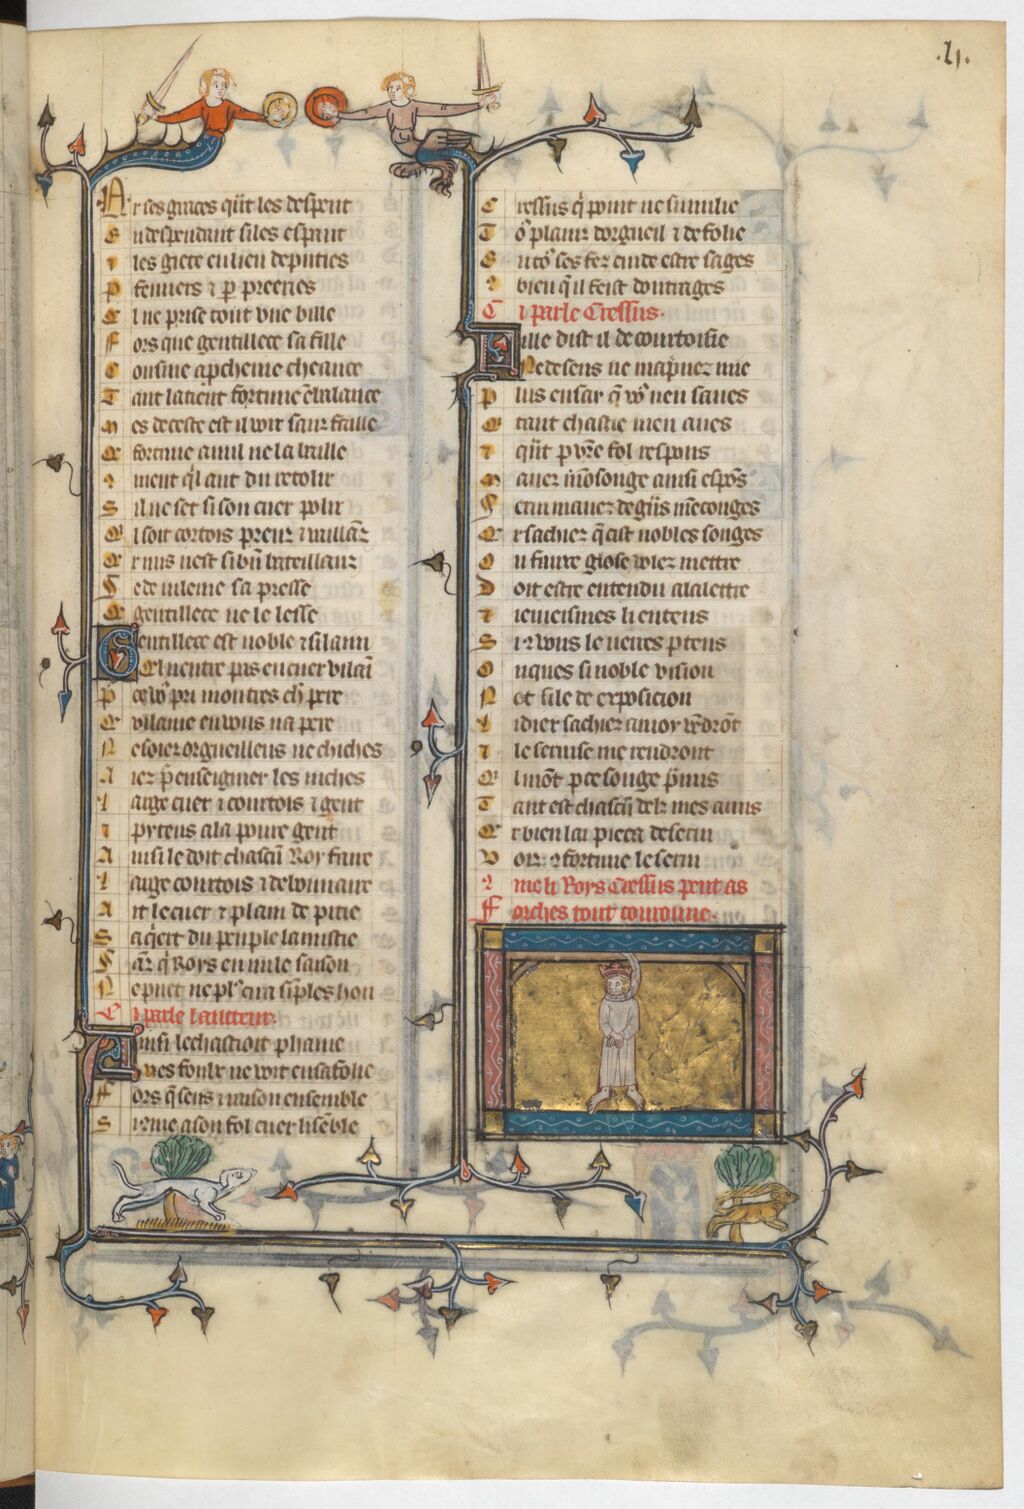 .lj.
Par ses graces q̃it les despent
En despendant si les espant
Les giete en lieu de puties
P fenniers ⁊ p̱ preeries
El ne prise tout vne bille
Fors que gentillece sa fille
Cousine a p̱cheine cheance
Tant la tient fortune ē balance
Mes de ceste est il voir sanz faille
Q̃ fortune a nul ne la baille
Ment q̃l aut du retolir
Sil ne set si son cuer polir
Ql soit cortois preuz ⁊ uaillāz
Car nus nest si bñ bataillanz
Se de vilenie sa presse
Q̃ gentillece ne le lesse
Gentillece est noble ⁊ si lain
El nentre pas en cuer vilaī
Pce vo9 pri mon tres ch̃ pere
Q̃ vilanie en vous na pere
Ne soiez orgueilleus ne chiches
Aiez p̱ enseignier les riches
Large cuer ⁊ courtois ⁊ gent
⁊ pyteus a la poure gent
Ainsi le doit chascū Roy faire
Large courtois ⁊ debonnaire
Ait le cuer ⁊ plain de pitie
Sa q̃ert du peuple lamistie
Sāz q̃ Roys en nule saison
Ne puet ne pl9 cun sīples hon
Ci parle lauteur.
Ainsi le chastioit phanie
Mes foulz ne voit en sa folie
Fors q̃ sens ⁊ raison ensemble
Si 9me a son fol cuer li sēble
Cressus q̃ point ne sumilie
To9 plainz dorgueil ⁊ de folie
En to9 ses fez cuide estre sages
9bien q̃l feist dontrages
Ci parle Cressus.
Fille dist il de courtoisie
Ne de sens ne map̱nez mie
Plus en sai q̃ vo9 nen saues
Q̃ tant chastie men aues
⁊ q̃it p vr̃e fol respons
Mauez mēsonge ainsi espōs
Serui mauez de gñs mēconges
Car sachiez q̃ cist nobles songes
Ou fausse glose volez mettre
Doit estre entendu a la lettre
⁊ ie meismes li entens
Si 9 vous le uerres p̱ tens
Onques si noble vision
Not si vile exposicion
Li dier sachiez a moy vēdrōt
⁊ le seruise me rendront
Ql mōt p ce songe p̃mis
Tant est chascū delz mes amis
Car bien lai pieca deserui
Voir 9 fortune le serui
9me li Roys Cressus pent as
Forches tout couronne.